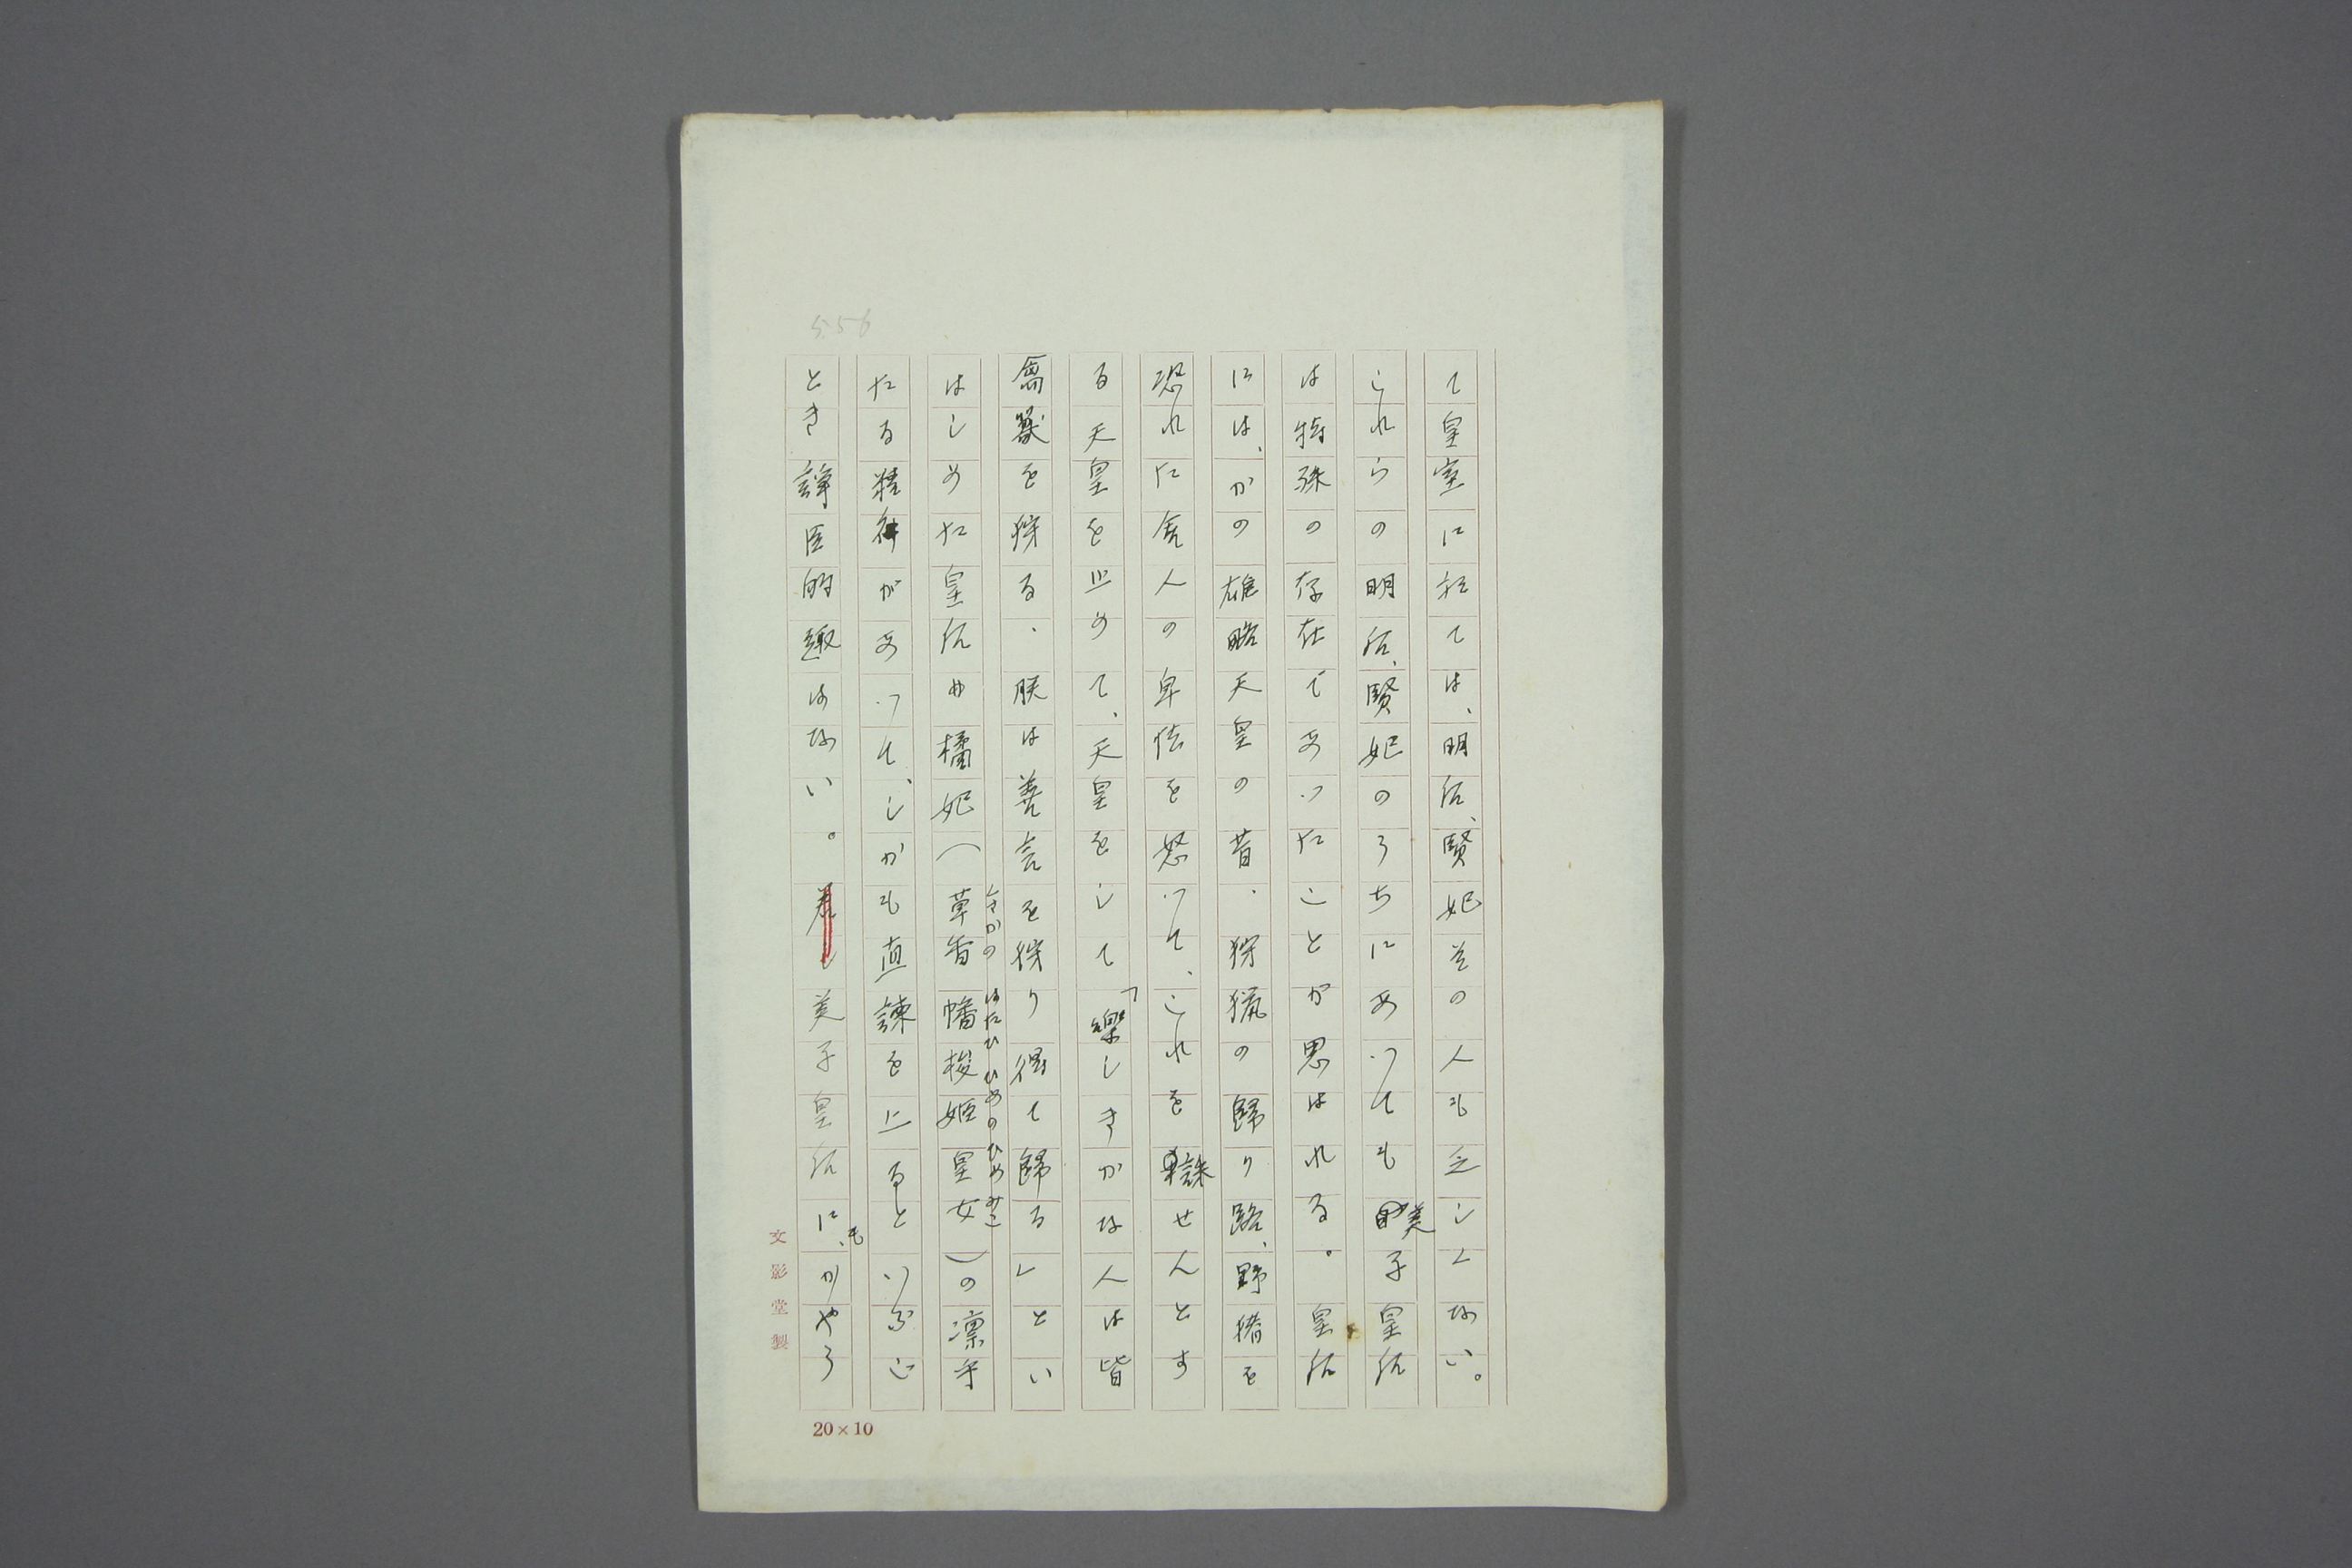 556
て皇室に於ては、明后、賢妃その人も乏しくない。
これらの明后、賢妃のうちにあつても美子皇后
は特殊の存在であつたことが思はれる。皇后
には、かの雄略天皇の昔、狩猟の歸り路、野猪を
恐れた舎人の卑怯を怒つて、これを誅せんとす
る天皇を止めて、天皇をして「樂しきかな人は皆
禽獣を狩る、朕は善言を狩り得て歸る」とい
はしめた皇后 橘妃(草香幡梭姫皇女)の凛乎
くさかの はたひ ひめのひめみこ
たる精神があつて、しかも直諫を上るといふご
とき諍臣的趣はない。美子皇后にも、かやう
文影堂製
20×10